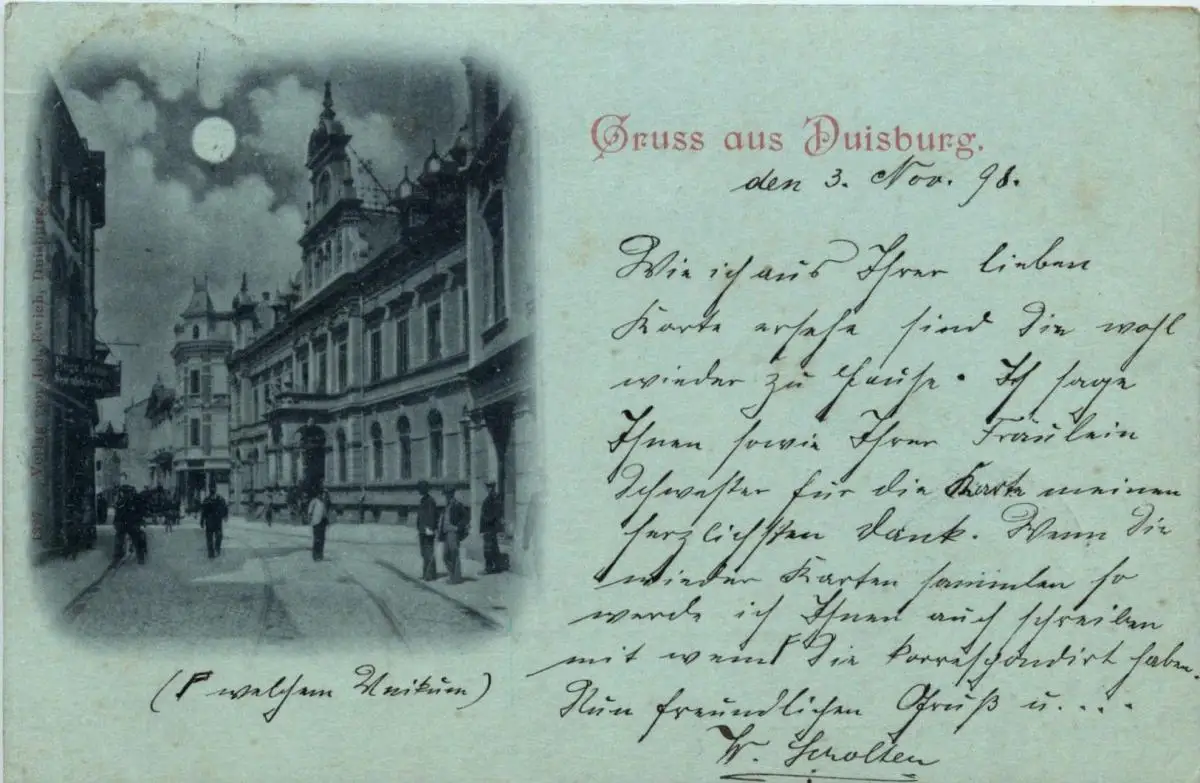 Gruss aus Duisburg.
den 3. Nov. 98.
Wie ich aus Ihrer lieben
Karte ersehe sind Sie wohl
wieder zu Hause. Ich sage
Ihnen sowie Ihrer Fräulein
Schwester für die Karte meinen
herzlichsten Dank. Wenn Sie
wieder Karten sammlen so
werde ich Ihnen auch schreiben
mit wem Sie korrespondirt haben.
Nun freundlichen Gruß u. . . .
W. Scholten
( welchem Unikum)
Verlag von Ewich, Duisburg